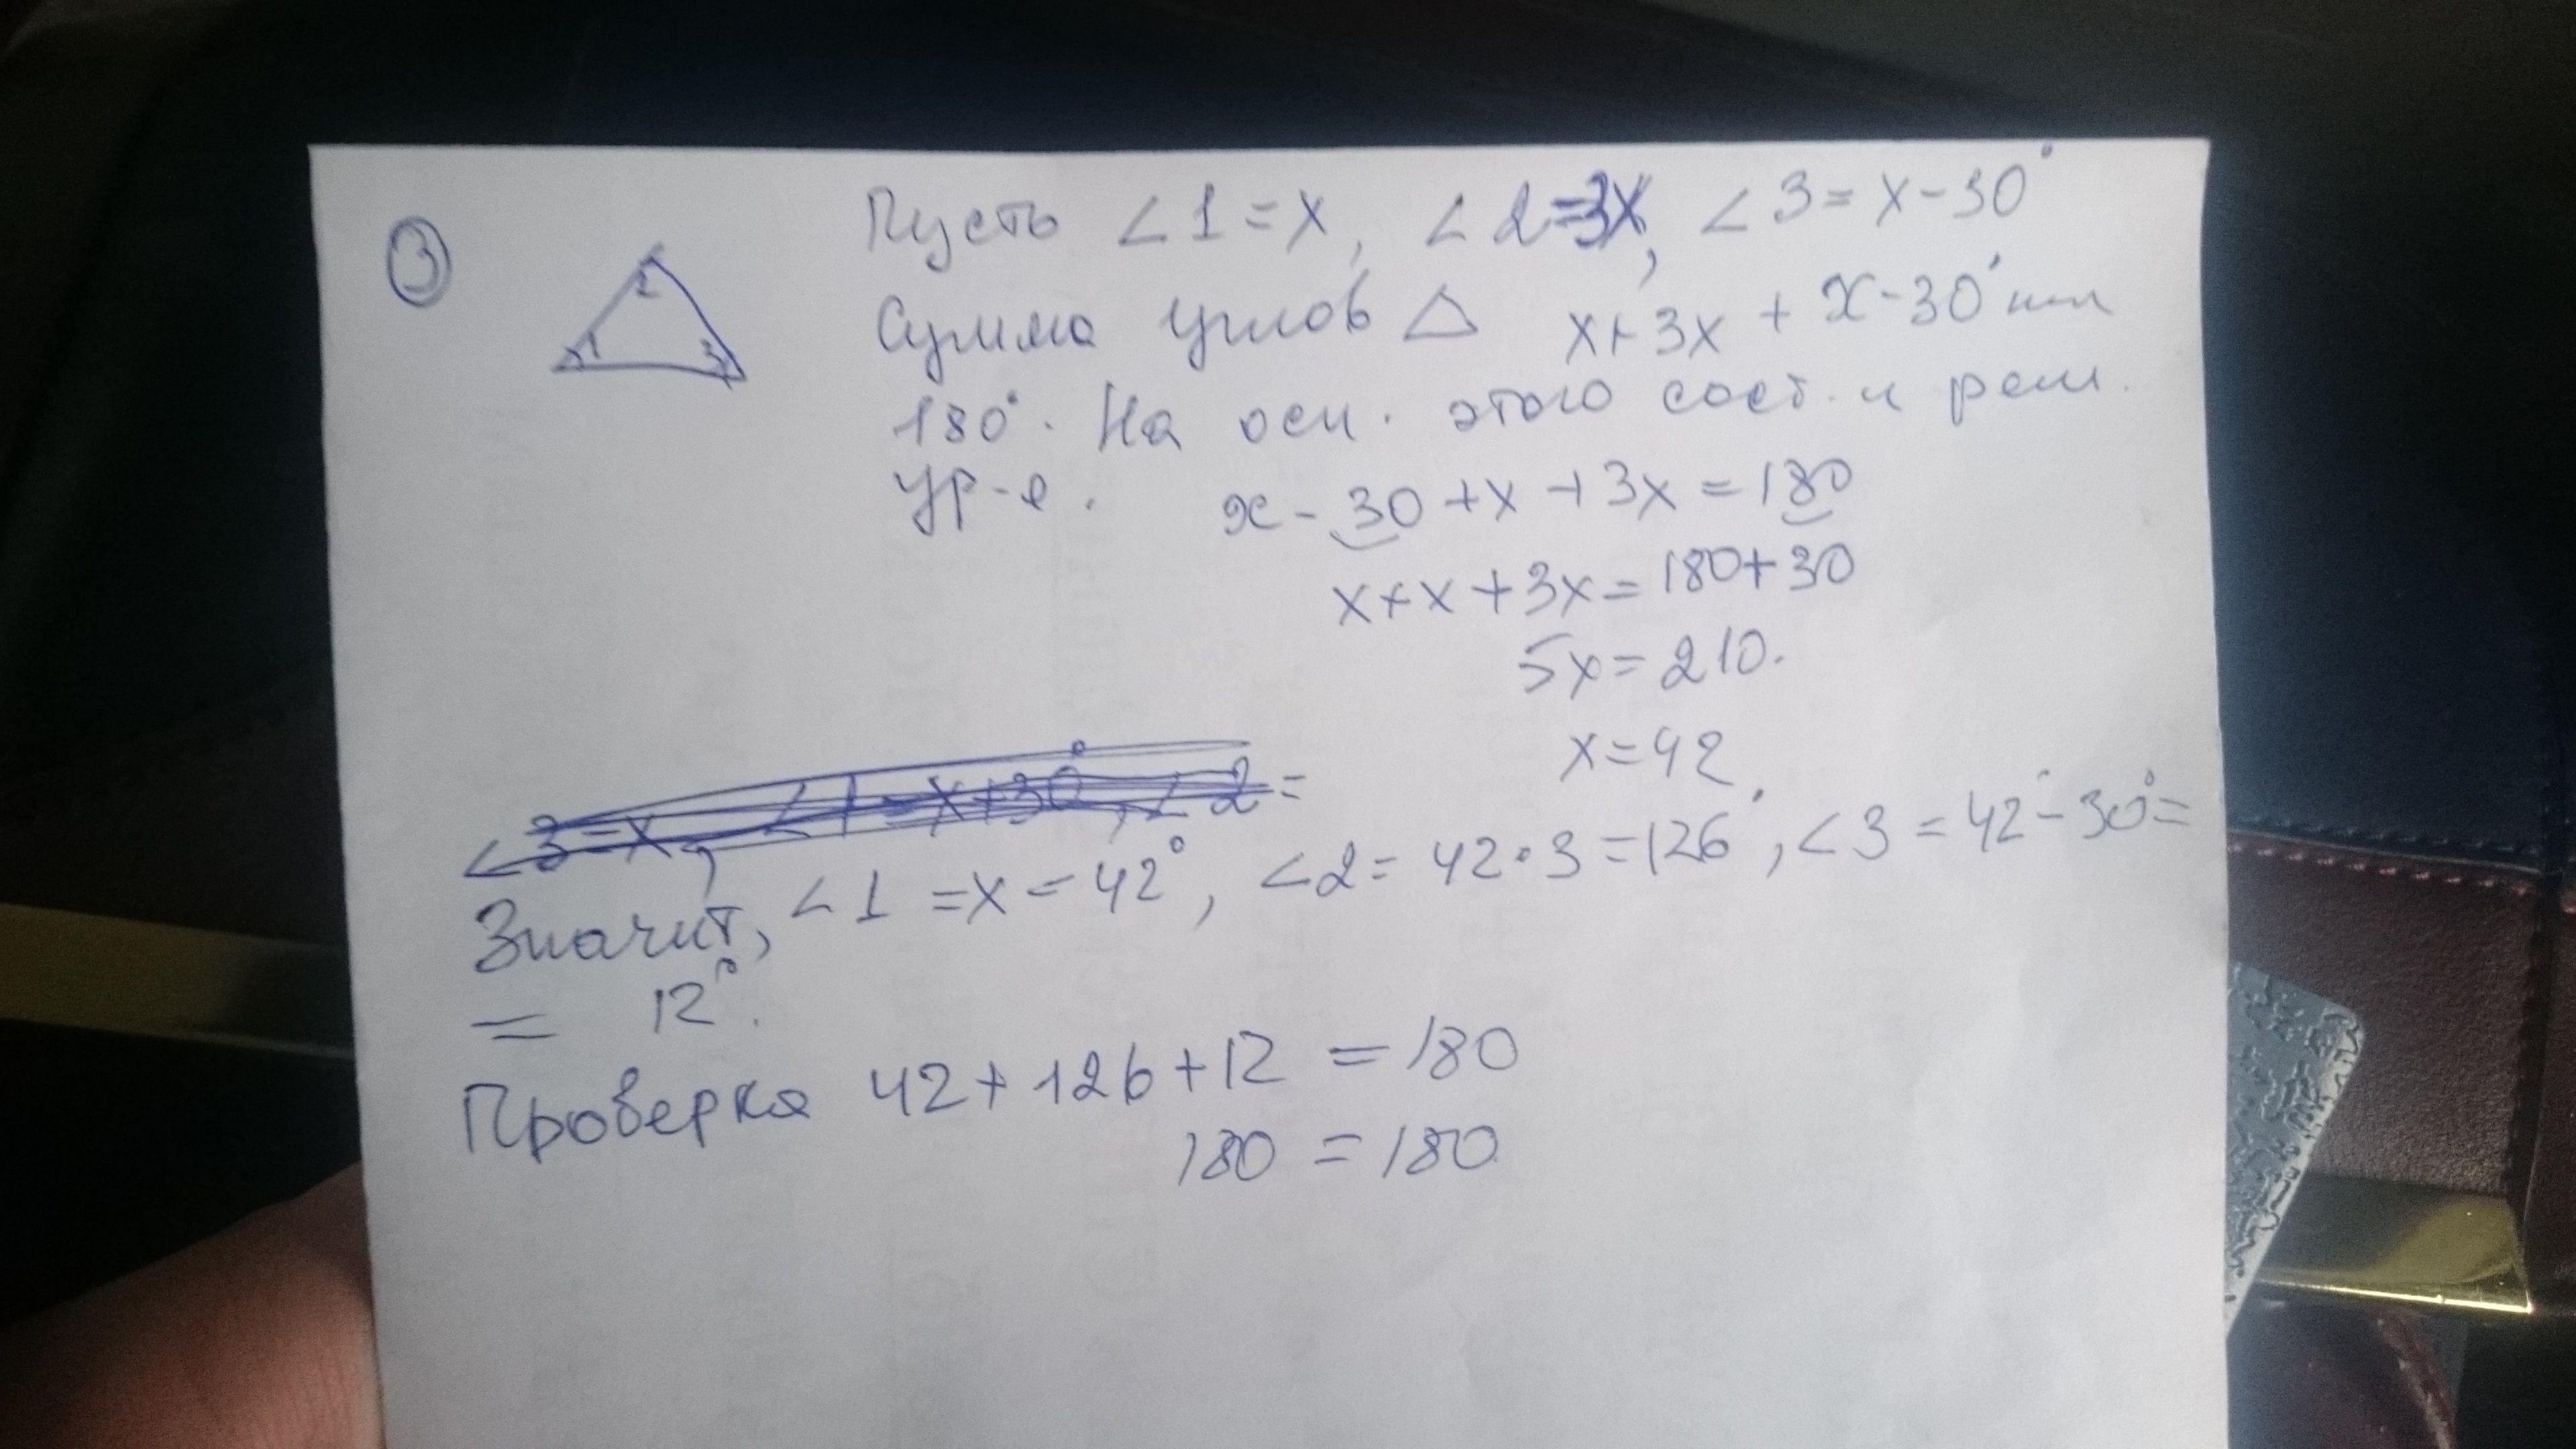 3
Пусть ∠1=x, ∠2=3x, ∠3=x-30°
2
1
3
Сумма углов △ x+3x+x-30° или
180°. На осн. этого сост. и реш.
ур-е. x-30+x+3x=180
x+x+3x=180+30
5x=210.
x=42
∠3=x, ∠1=x+30°, ∠2=
Значит, ∠1=x=42°, ∠2=42·3=126°, ∠3=42°-30°=
= 12°.
Проверка 42+126+12=180
180=180